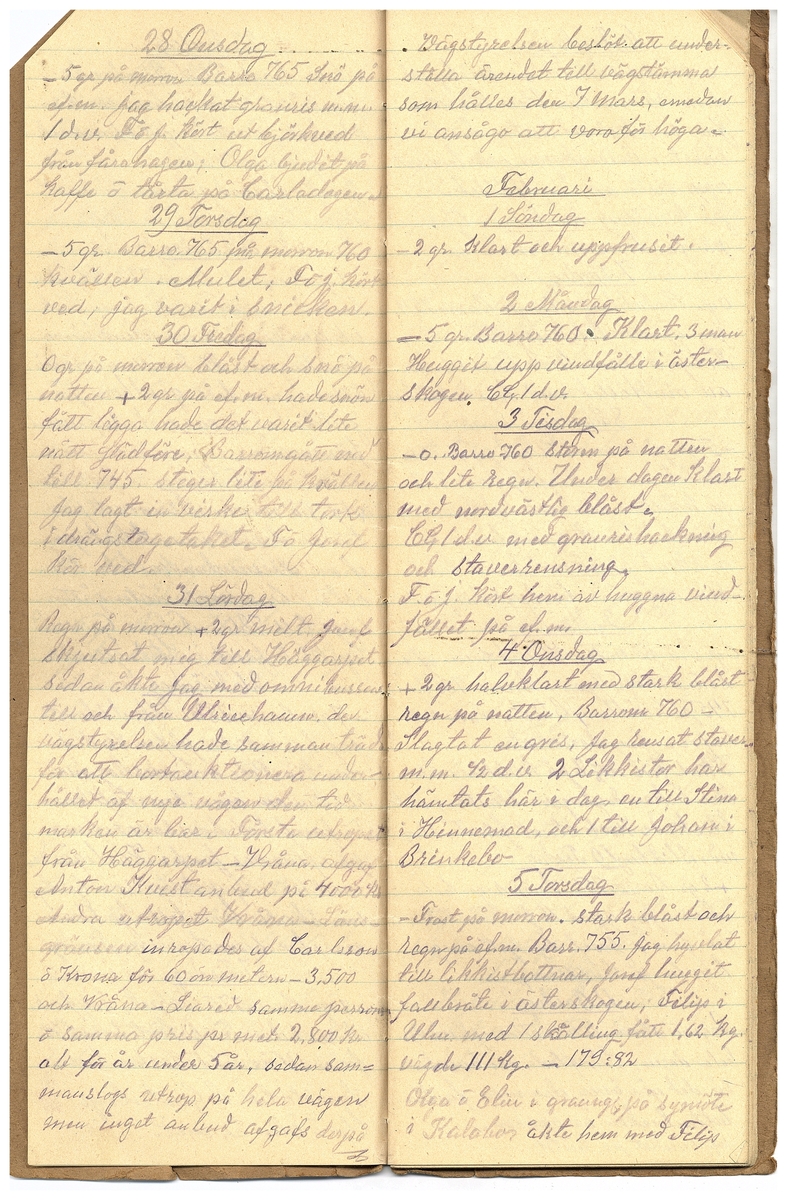 28 Onsdag
- 5 gr på morron Barro 765 Snö på
ef.m. jag hackat granris m.m.
1 d.v. F o J. kört ut björkved
från fårahagen; Olga bjudit på
kaffe o tårta på Carladagen.
29 Torsdag
- 5 gr. Barro. 765 på morron 760
kvällen. Mulet, F o J. kört
ved, jag varit i snicken.
30 Fredag
0 gr på morron blåst och snö på
natten + 2 gr på ef.m. hade snön
fått ligga hade det varit lite
nått slädföre; Barrom gått ned
till 745. stiger lite på kvällen
Jag lagt in virke till tork
i drängstugetaket. F o Josef
kör ved.
31 Lördag
Regn på morron + 2 gr milt, Josef
skjutsat mig till Häggarpet
sedan åkte jag med omnibussen
till och från Ulricehamn. der
vägstyrelsen hade samman träde
för att bortauktionera under-
hållet af nya vägen den tid
marken är bar. Första utropet
från Häggarpet - Vråna, afgaf
Anton Kvist anbud på 4000 kr
Andra utropet Vråna - Läns-
gränsen inropades af Carlsson
o Krona för 60 ör metern - 3,500
och Vråna - Liared samma person
o samma pris pr met. 2,800 kr
alt för år under 5 år, sedan sam=
manslogs utrop på hela vägen
men inget anbud afgafs derpå
. Vägstyrelsen beslöt att under-
ställa ärendet till vägstämma
som hålles den 7 Mars, emedan
vi ansågo att vora för höga -
Februari
1 Söndag
- 2 gr. Klart och uppfruset.
2 Måndag
- 5 gr. Barro 760. Klart. 3 man
Huggit upp vindfälle i öster-
skogen. CG, 1 d.v.
3 Tisdag
- 0. Barro 760 storm på natten
och lite regn. Under dagen klart
med nordvästlig blåst.
CG, 1 d.v. med granrishackning
och staverrensning.
F o J. kört hem av huggna vind-
fället på ef.m.
4 Onsdag
+ 2 gr halvklart med stark blåst
regn på natten, Barrom 760 -
Slagtat en gris, Jag rensat staver.
m.m. 1/2 d.v. 2 Likkistor har
hämtats här i dag, en till Stina
i Hinnemad, och 1 till Johan i
Brinkebo
5 Torsdag
- Frost på morron. stark blåst och
regn på ef.m. Barr. 755. jag hyvlat
till likkistbottnar, Josef huggit
fallbråte i österskogen; Filip i
Ulu. med 1 skälling fått 1,62 kg.
vägde 111 kg. - 179:82
Olga o Elin i på symöte
i Kalabo, åkte hem med Filip